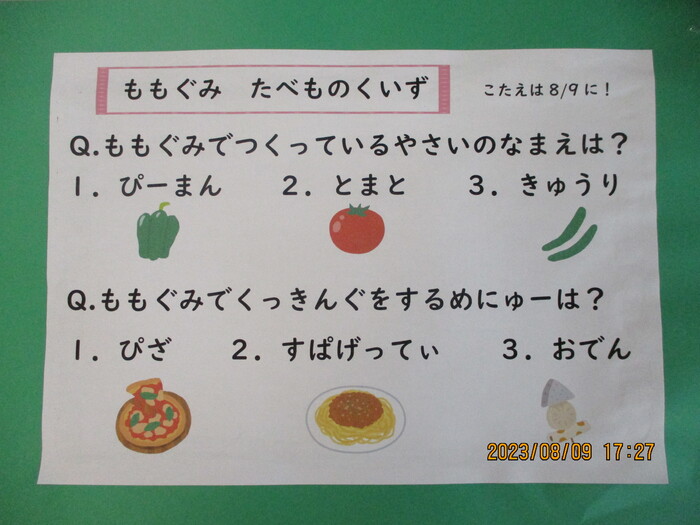 ももぐみ　たべものくいず
こたえは8/9に！
Q.ももぐみでつくっているやさいのなまえは？
1．ぴーまん　2．とまと　3．きゅうり
Q.ももぐみでくっきんぐをするめにゅーは？
1．ぴざ　2．すぱげってぃ　3．おでん
2023/08/09 17:27